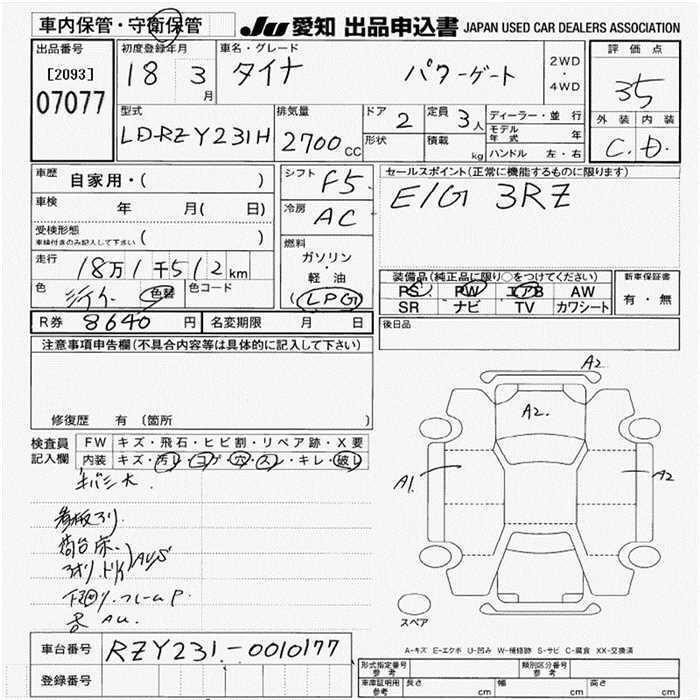 車内保管・守衛保管
JU 愛知 出品申込書 JAPAN USED CAR DEALERS ASSOCIATION
出品番号
[2093]
07077
初度登録年月
18 3月
車名・グレード
ダイナ パワーゲート
2WD
・
4WD
評価点
35
外装 内装
C. D.
型式
LD-RZY231H
排気量
2700 cc
ドア
2
形状
定員
3人
積載 kg
ディーラー・並行
モデル年式 年
ハンドル 左・右
車歴
自家用・( )
車検
年 月( 日)
受検形態
車検付きのみ記入して下さい ( )
走行
18万1千512km
色
色替
色コード
シフト
F5
冷房
AC
燃料
ガソリン
・
軽油
(LPG)
セールスポイント(正常に機能するものに限ります)
E/G 3RZ
装備品(純正品に限り○をつけてください)
PS PW エアB AW
SR ナビ TV カワシート
新車保証書
有・無
R券 8640円
名変期限 月 日
後日品
注意事項申告欄(不具合内容等は具体的に記入して下さい)
修復歴 有 (箇所 )
検査員記入欄
FW キズ・飛石・ヒビ割・リペア跡・X要
内装 キズ・汚レ・コゲ・穴・スレ・キレ・破レ
看板アリ
荷台床
下回り.フレームP.
各AU.
A2
A2.
A1.
A2
スペア
A-キズ E-エクボ U-凹み W-補修跡 S-サビ C-腐食 XX-交換済
車台番号 RZY231-0010177
登録番号
形式指定番号 参考
類別区分番号 参考
車庫証明用 参考
長さ cm 幅 cm 高さ cm